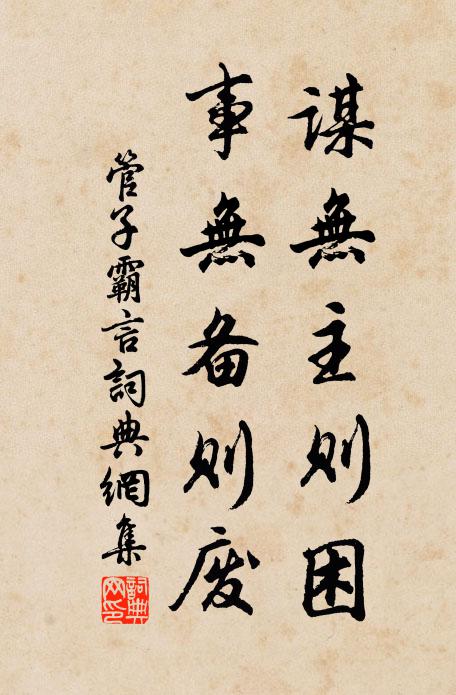 謀無主則困
事無备則废
管子霸言詞典網集
詞典
网印